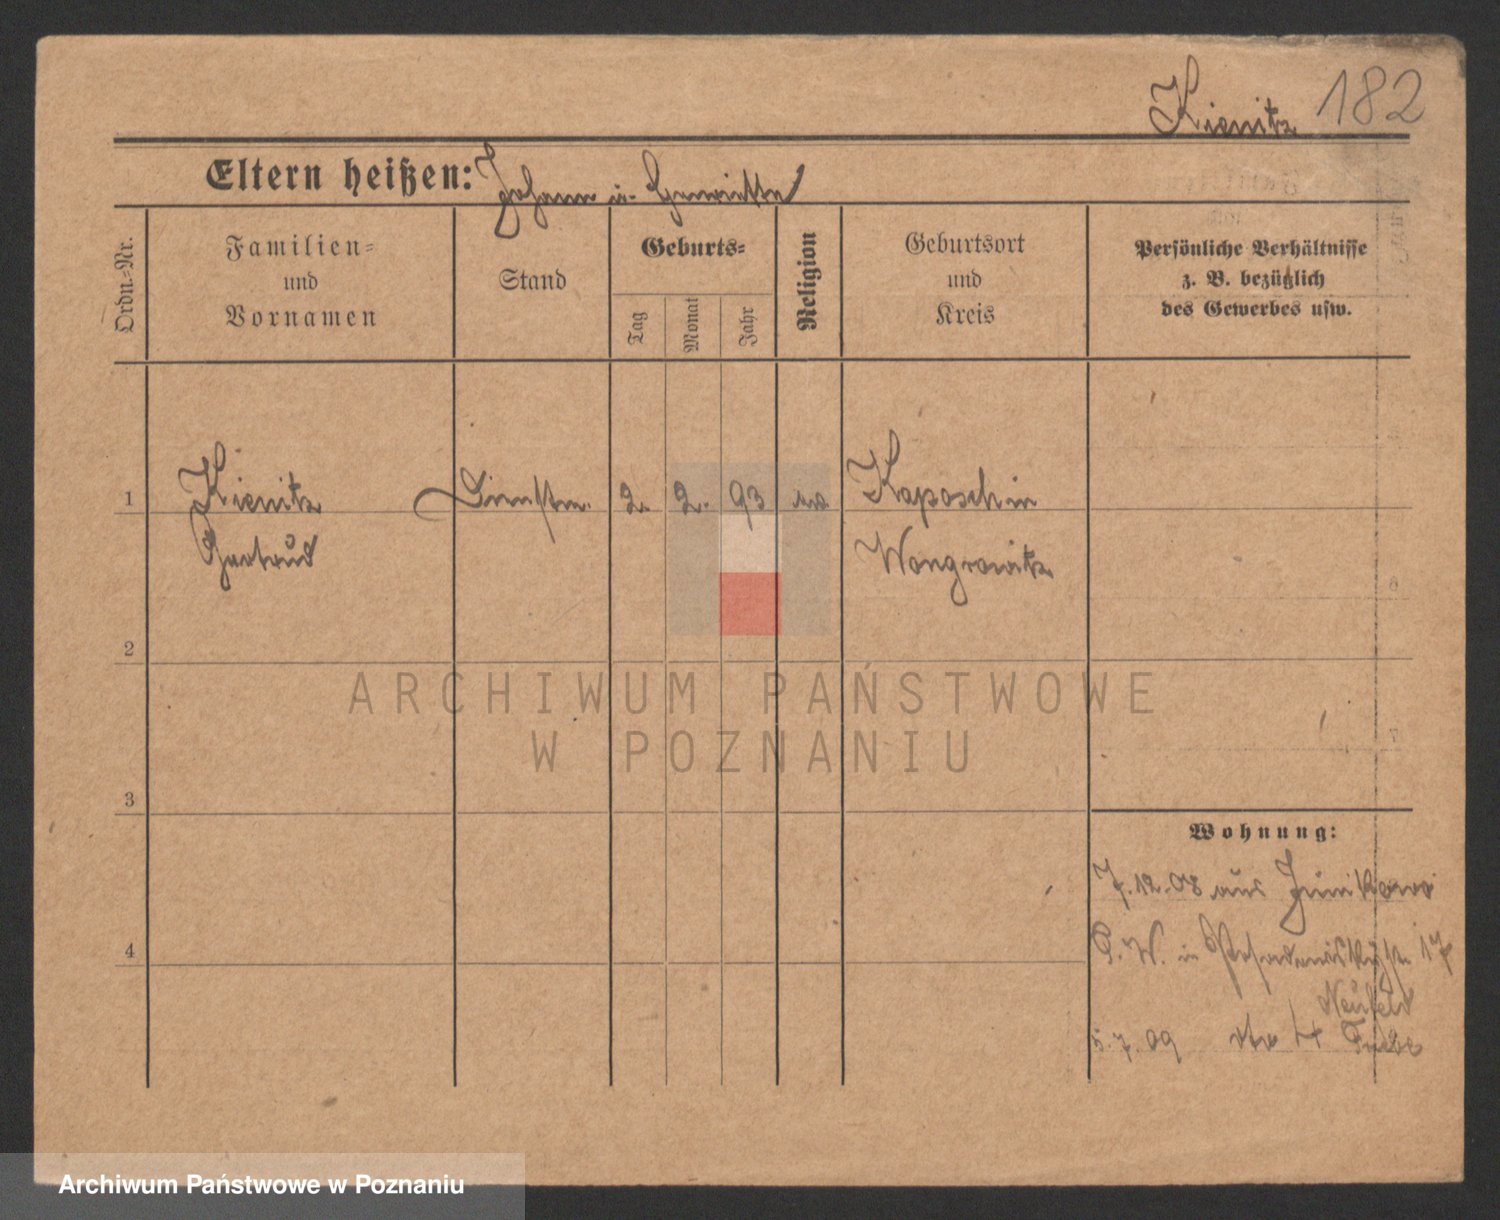 Kienitz 182
Eltern heißen: Johann u. Henriette
Ordn.=Nr.
Familien=
und
Vornamen
Stand
Geburts=
Tag
Monat
Jahr
Religion
Geburtsort
und
Kreis
Persönliche Verhältnisse
z. B. bezüglich
des Gewerbes usw.
1 Kienitz Dienstm. 2. 2. 93 ev. Kaposchin
Gertrud Wongrowitz
2
3
4
ARCHIWUM PAŃSTWOWE
W POZNANIU
Wohnung:
7.12.08 aus Junikowo
P. W. in 17
Neufeld
5.7.09 4
Archiwum Państwowe w Poznaniu